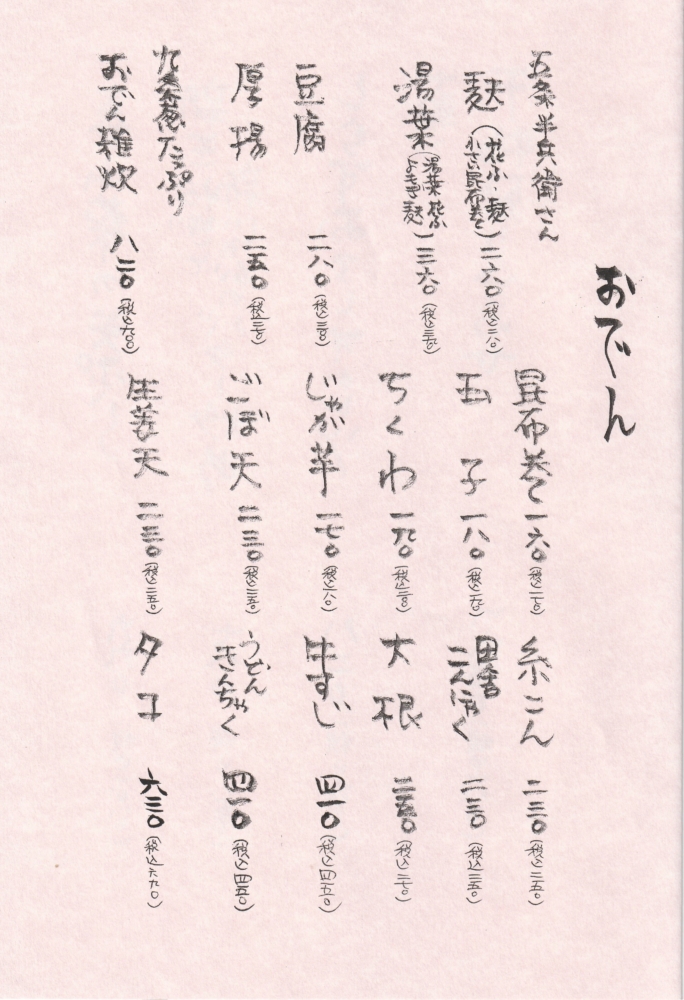 おでん
五条半兵衛さん
麩(花ふ・麩
小さい昆布巻き)二六〇(税込二八〇)
湯葉(湯葉 花ふ
よもぎ麩)三六〇(税込三九〇)
豆腐 二八〇(税込三〇〇)
厚揚 二五〇(税込二七〇)
九条葱たっぷり
おでん雑炊 八二〇(税込九〇〇)
昆布巻き 一六〇(税込一七〇)
玉子 一八〇(税込一九〇)
ちくわ 一九〇(税込二一〇)
じゃが芋 一七〇(税込一八〇)
ごぼ天 二三〇(税込二五〇)
生姜天 二三〇(税込二五〇)
糸こん 二三〇(税込二五〇)
田舎
こんにゃく 二三〇(税込二五〇)
大根 二五〇(税込二七〇)
牛すじ 四一〇(税込四五〇)
うどん
きんちゃく 四一〇(税込四五〇)
タコ 六三〇(税込六九〇)